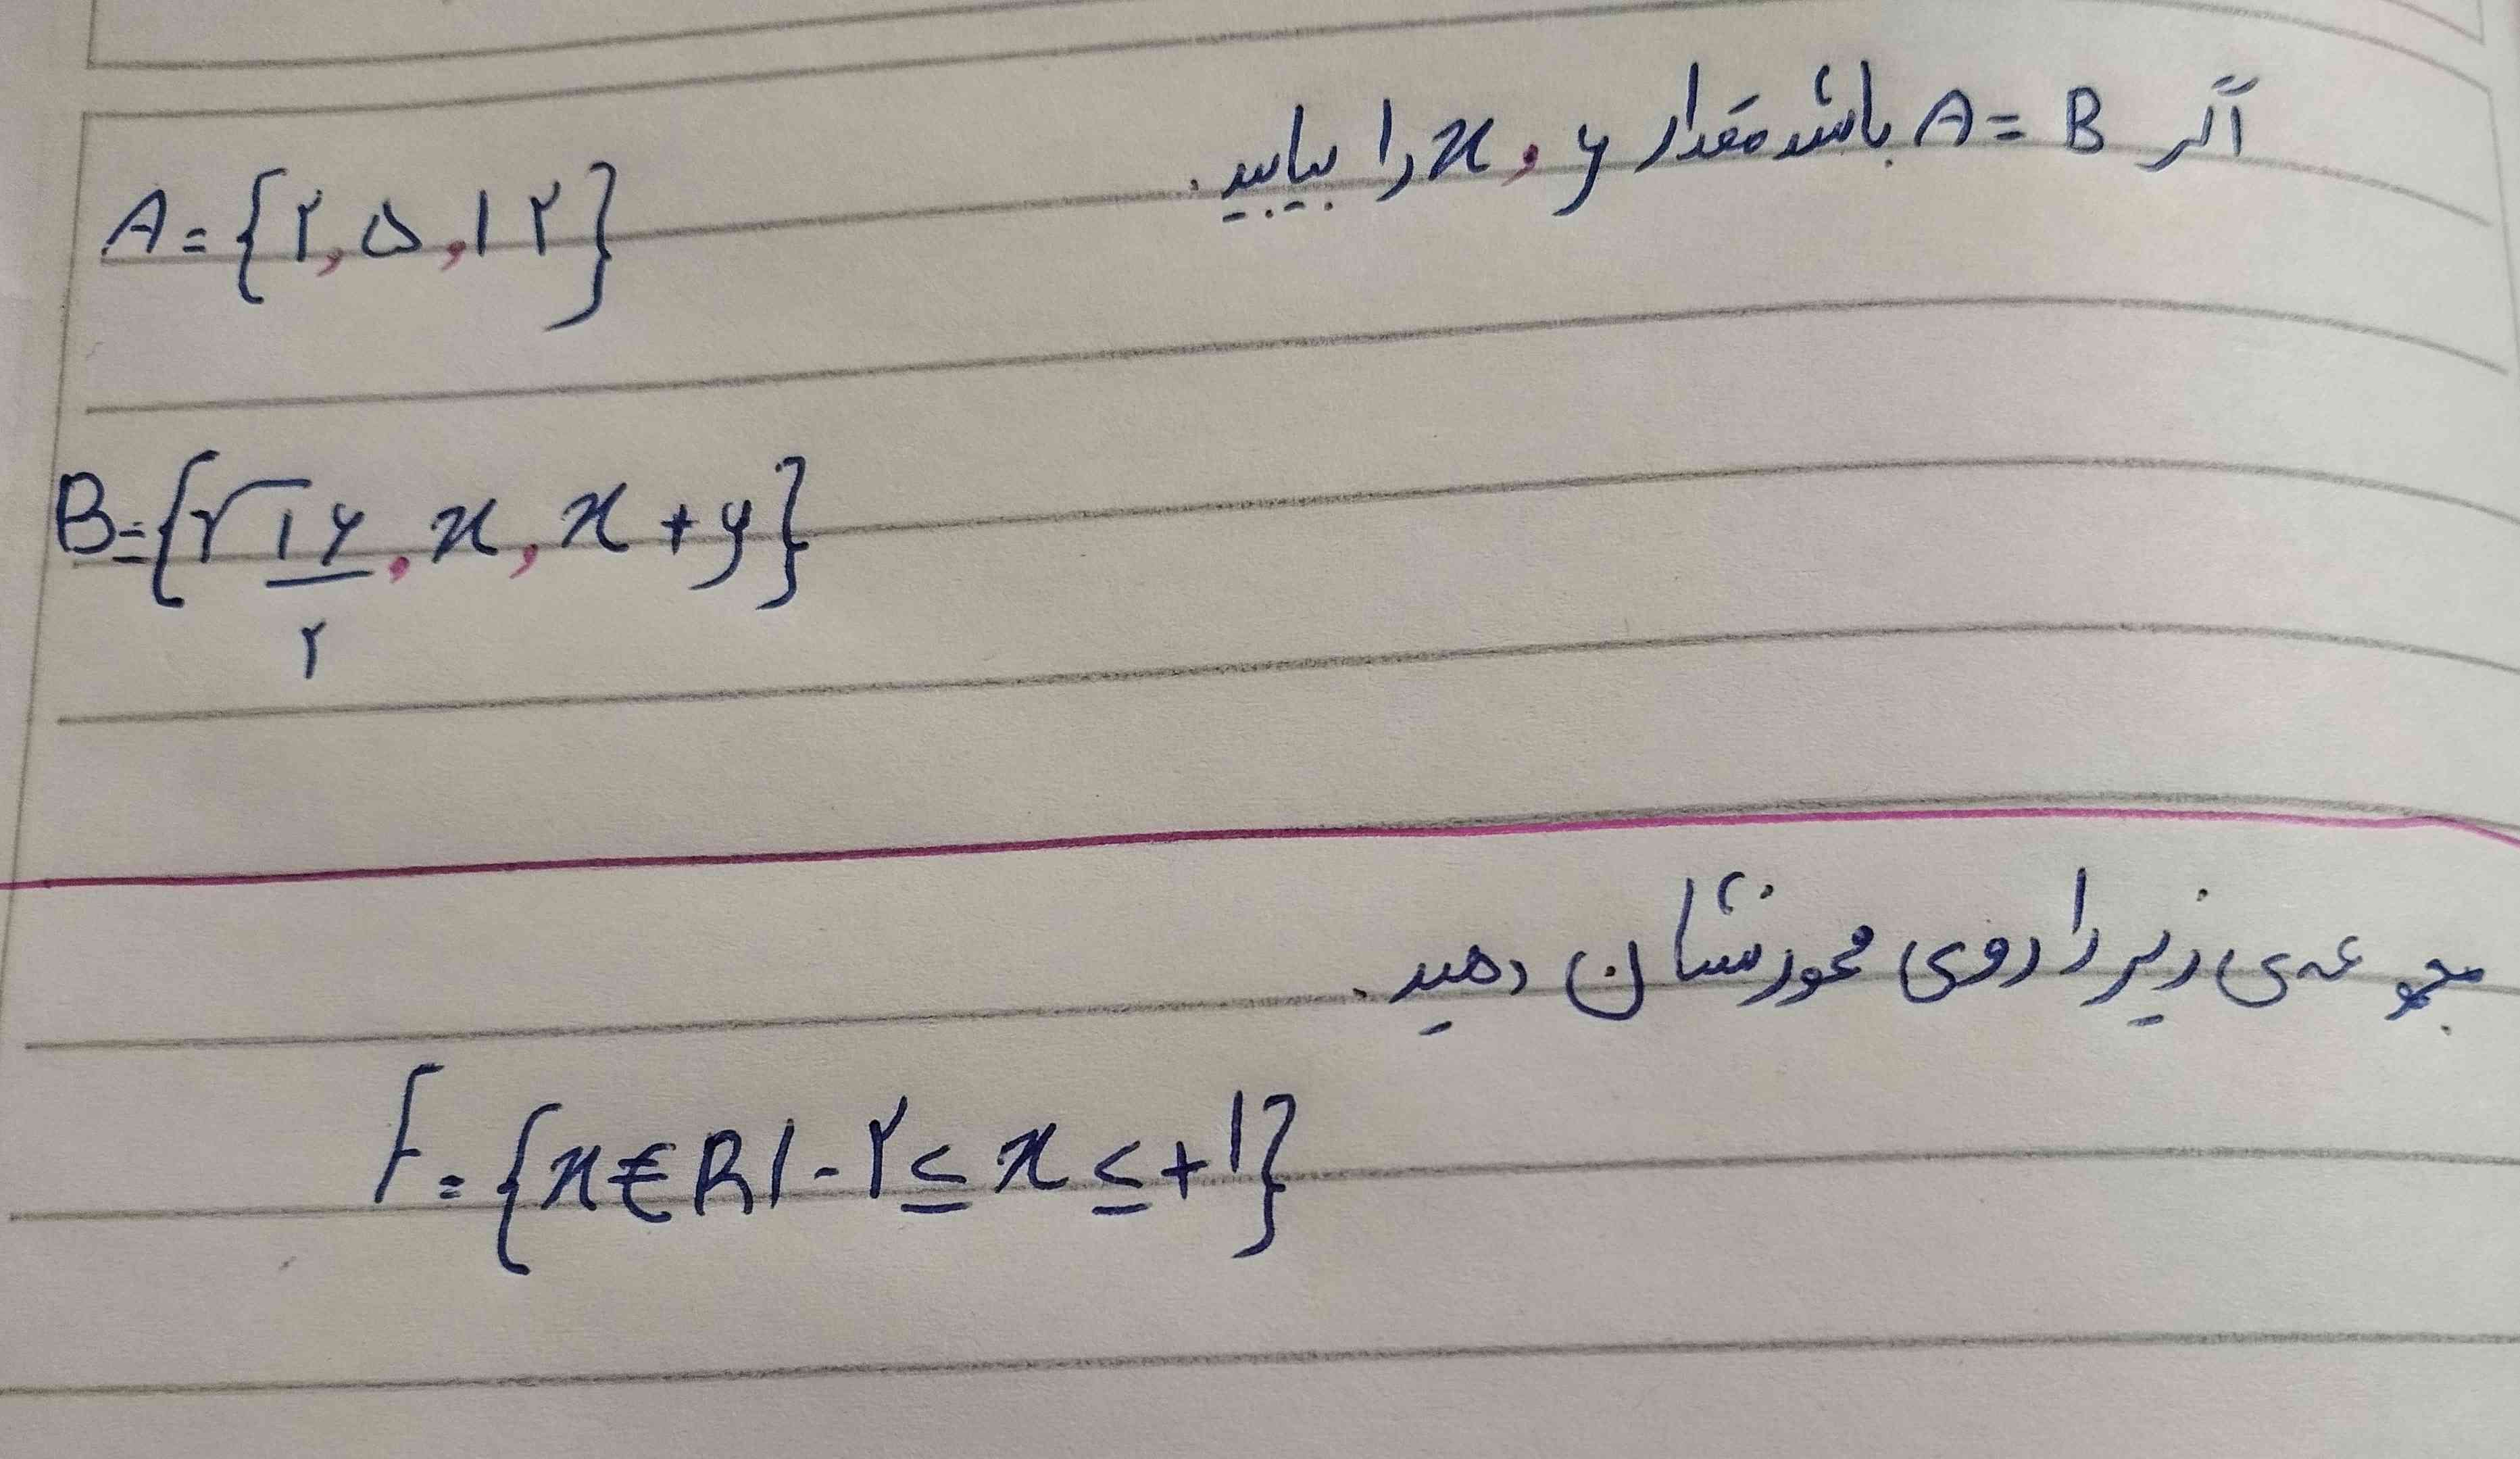 اگر A = B باشد مقدار y , x را بیابید.
A = {۲, ۵, ۱۲}
B = {√۱۶/۲, x, x + y}
مجموعه‌ی زیر را روی محور نشان دهید.
F = {x ∈ R | -۲ ≤ x ≤ +۱}